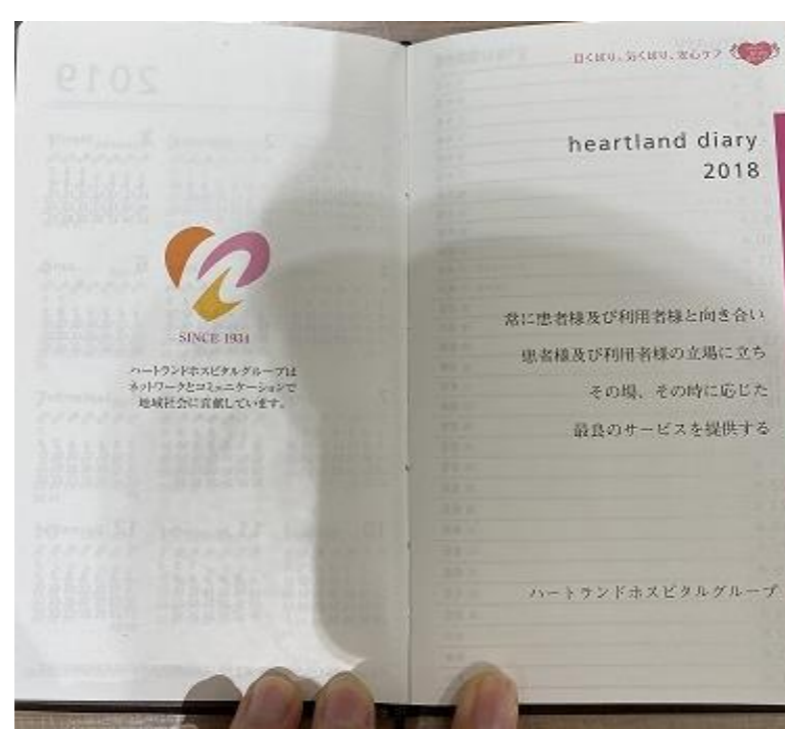 SINCE 1934
ハートランドホスピタルグループは
ネットワークとコミュニケーションで
地域社会に貢献しています。
目くばり、気くばり、安心ケア
heartland diary
2018
常に患者様及び利用者様と向き合い
患者様及び利用者様の立場に立ち
その場、その時に応じた
最良のサービスを提供する
ハートランドホスピタルグループ
2019